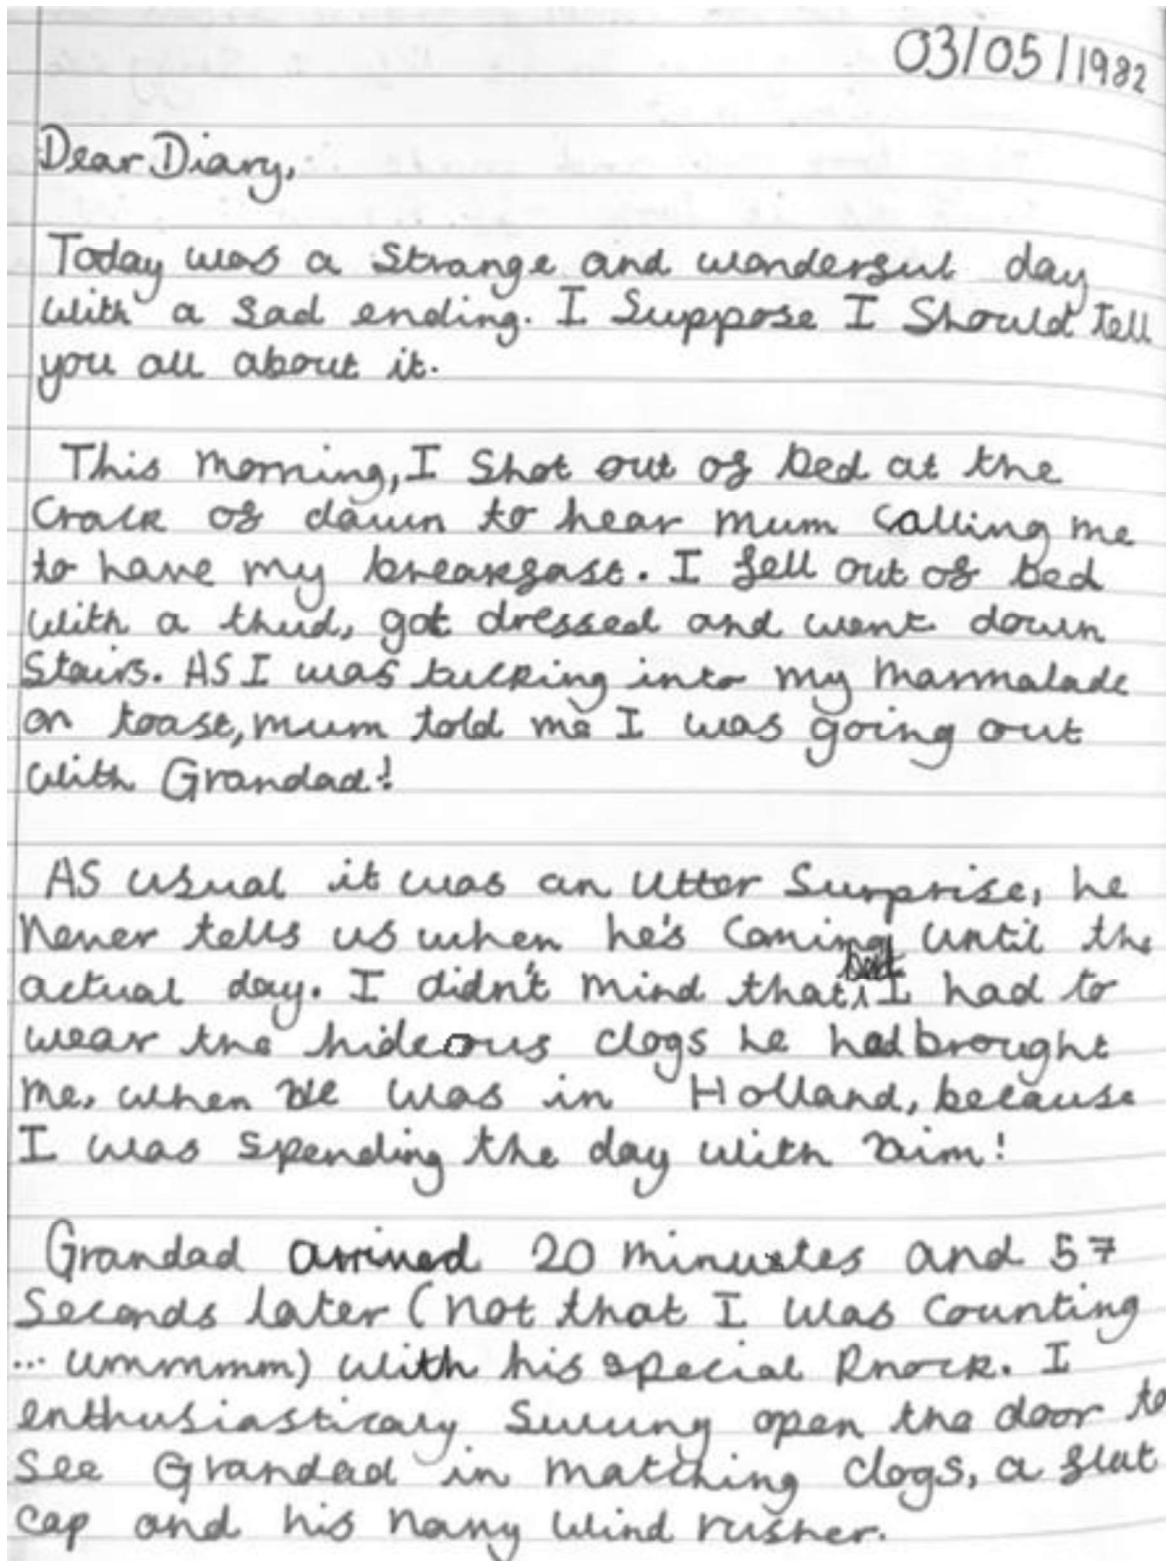 03/05/1982
Dear Diary,
Today was a strange and wonderful day
with a sad ending. I Suppose I Should Tell
you all about it.
This morning, I Shot out of bed at the
Crack of dawn to hear mum calling me
to have my breakfast. I fell out of bed
with a thud, got dressed and went down
Stairs. AS I was tucking into my marmalade
on toast, mum told me I was going out
with Grandad!
AS usual it was an utter Surprise, he
never tells us when he's coming until the
actual day. I didn't mind that I had to
wear the hideous clogs he had brought
me, when he was in Holland, because
I was spending the day with him!
Grandad arrived 20 minutes and 57
Seconds later (not that I was counting
... ummmm) with his special knock. I
enthusiasticaly swung open the door to
see Grandad in matching clogs, a flat
cap and his navy wind rusher.